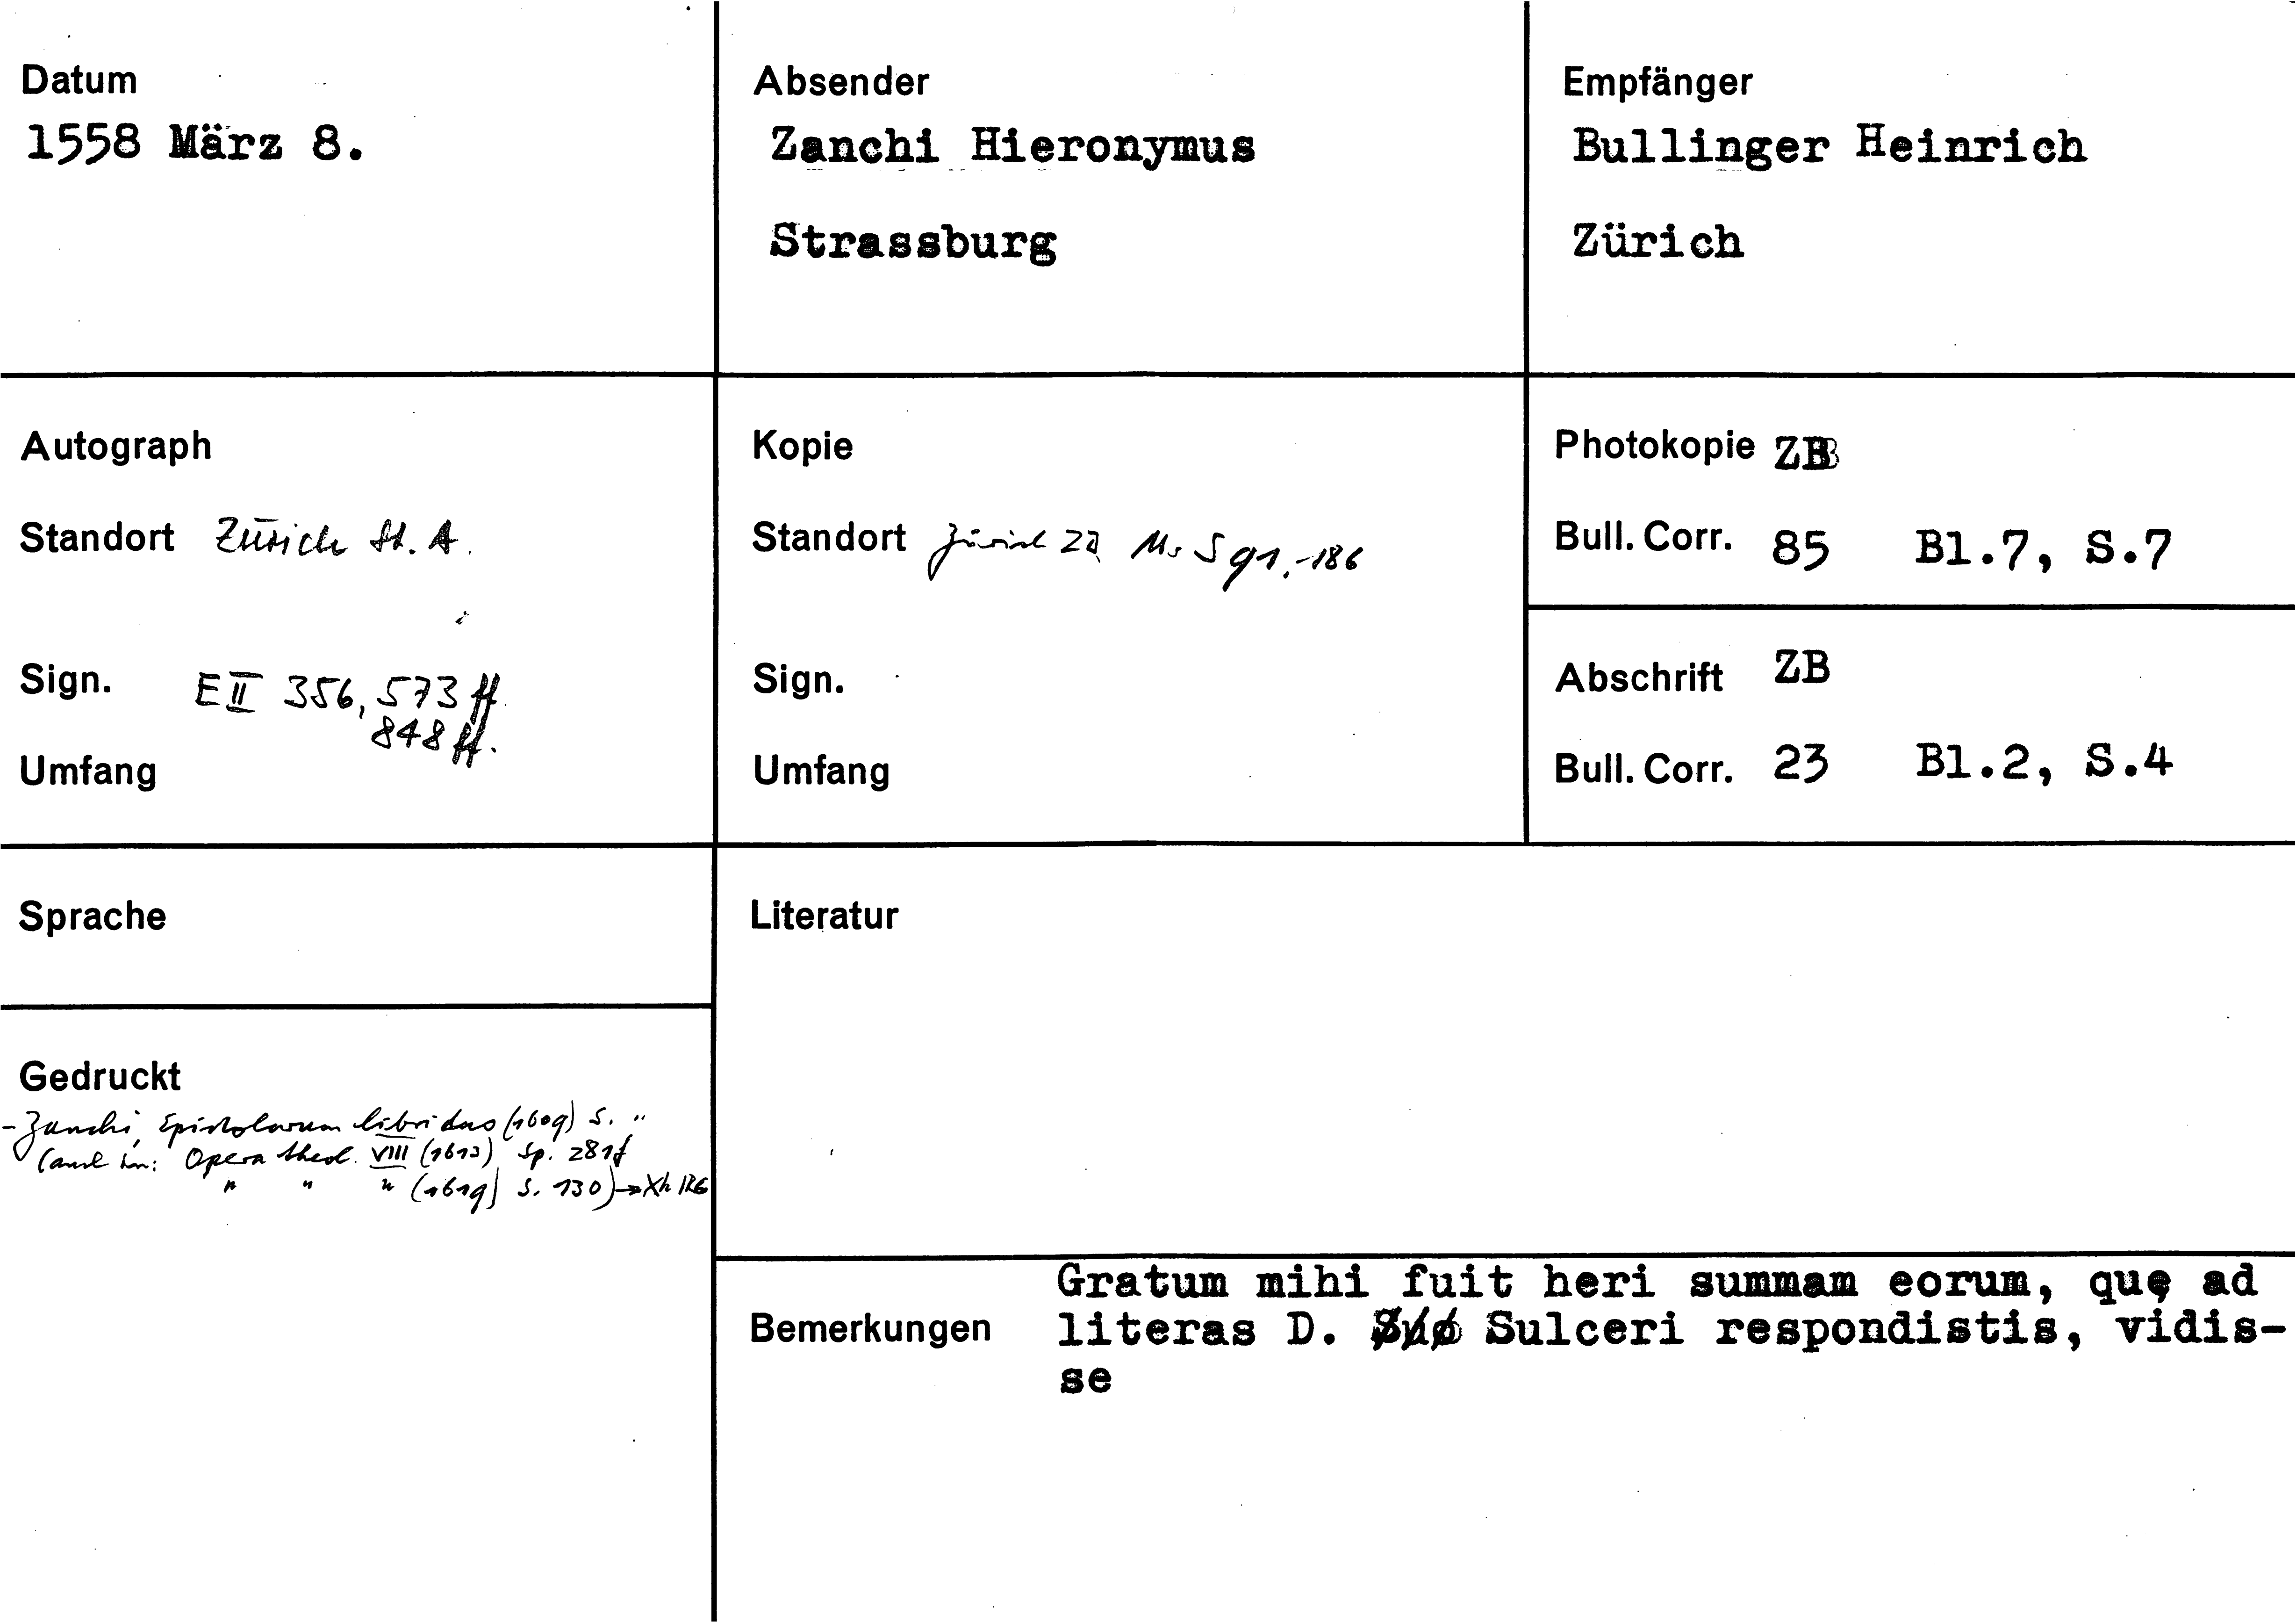 Datum
1558 März 8.
Absender
Zanchi Hieronymus
Strassburg
Empfänger
Bullinger Heinrich
Zürich
Autograph
Standort Zürich St. A.
Sign. E II 356, 573 ff.
848 ff.
Umfang
Kopie
Standort Zürich ZB Ms S 91,-186
Sign.
Umfang
Photokopie ZB
Bull. Corr. 85 Bl.7, S.7
Abschrift ZB
Bull. Corr. 23 Bl.2, S.4
Sprache
Gedruckt
- Zanchi, Epistolarum libri duo (1609) S. "
(auch in: Opera theol. VIII (1613) Sp. 281f
" " " (1619) S. 130) →
Literatur
Bemerkungen
Gratum mihi fuit heri summam eorum, quę ad
literas D. Sulceri respondistis, vidis-
se